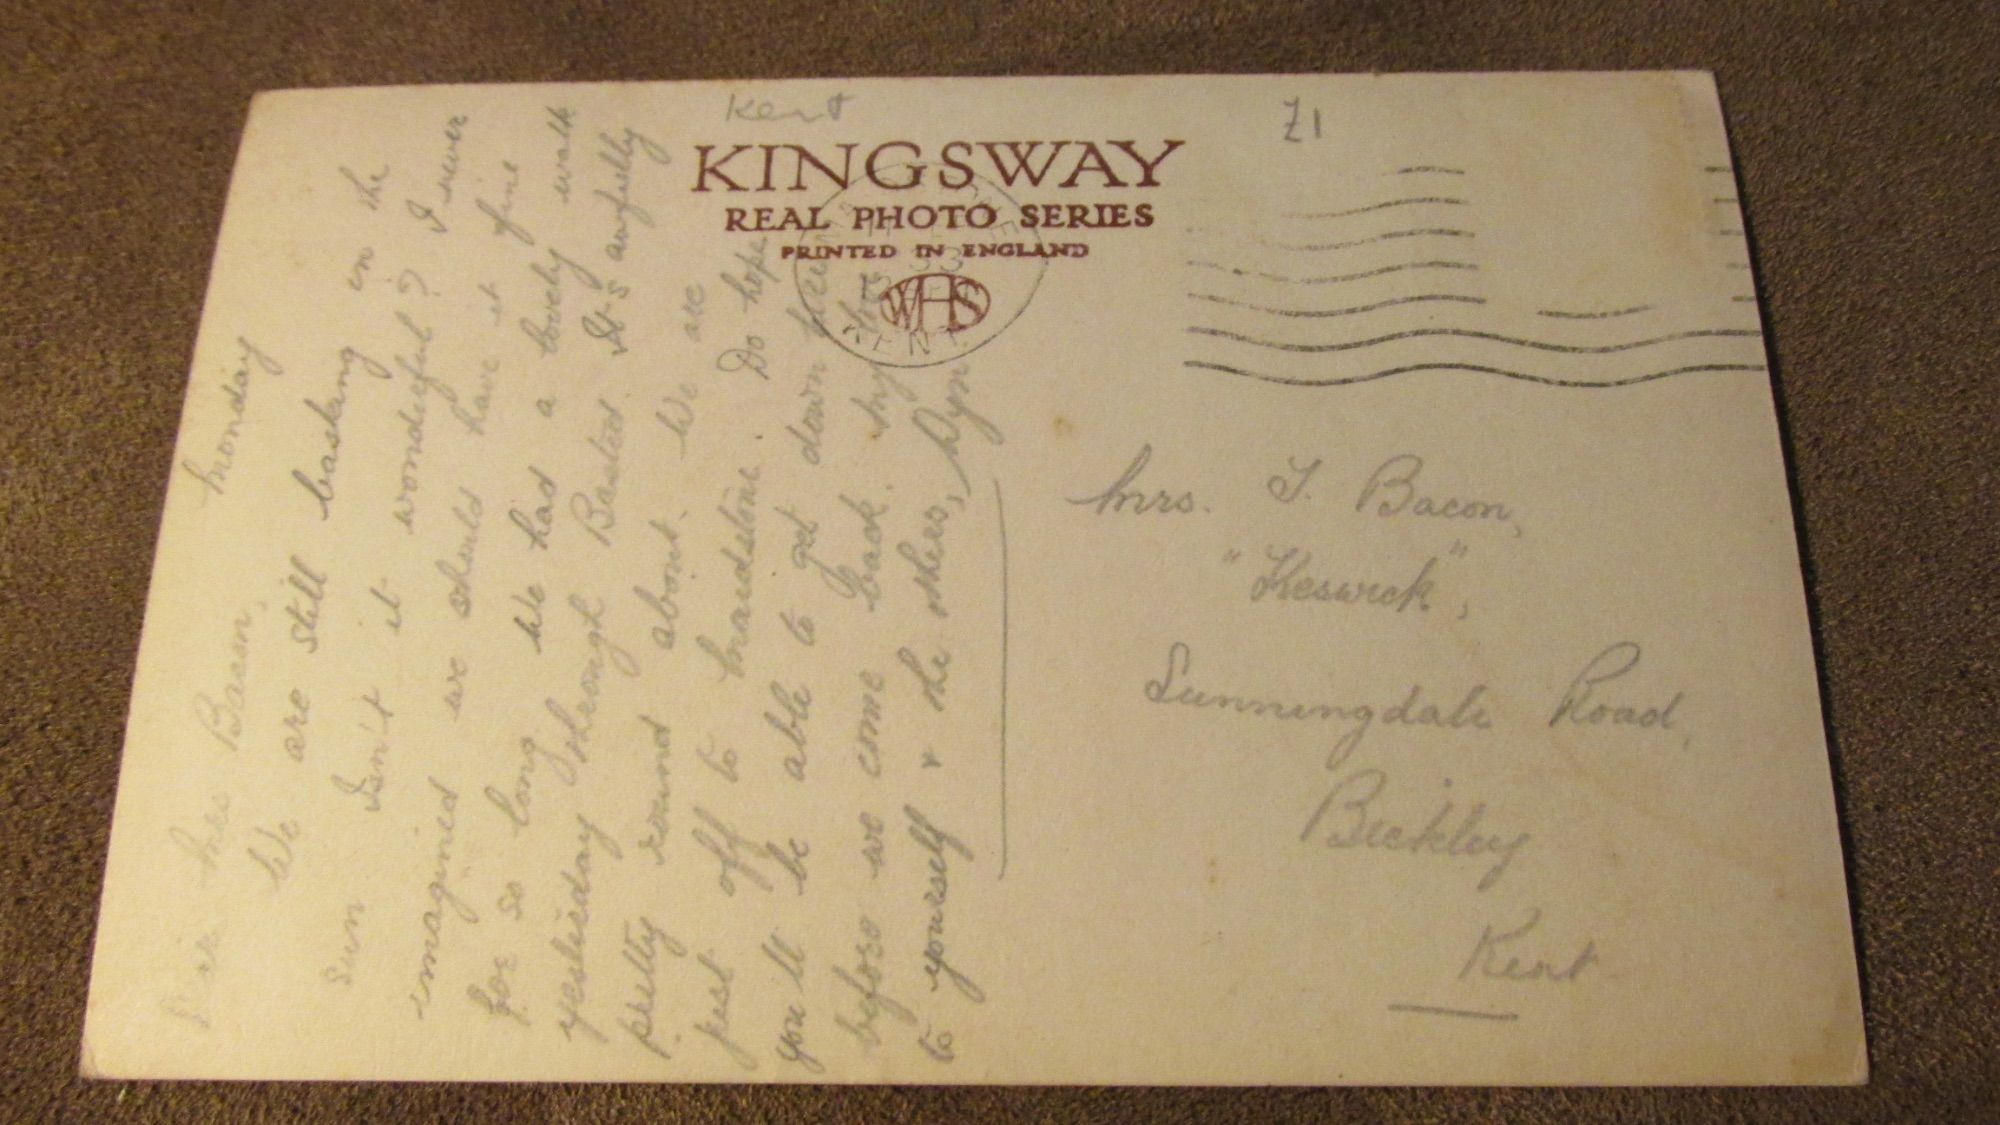 Kent
Z1
KINGSWAY
REAL PHOTO SERIES
PRINTED IN ENGLAND
WHS
KENT
Monday
Dear Mrs Bacon,
We are still basking in the
sun Isn't it wonderful? I never
imagined we should have it fine
for so long We had a lovely walk
yesterday through Basted. It's awfully
pretty round about. We are
just off to Maidstone. Do hope
you'll be able to get down here
before we come back. My love
to yourself & the others,
Mrs. T. Bacon,
"Keswick",
Sunningdale Road,
Bickley
Kent